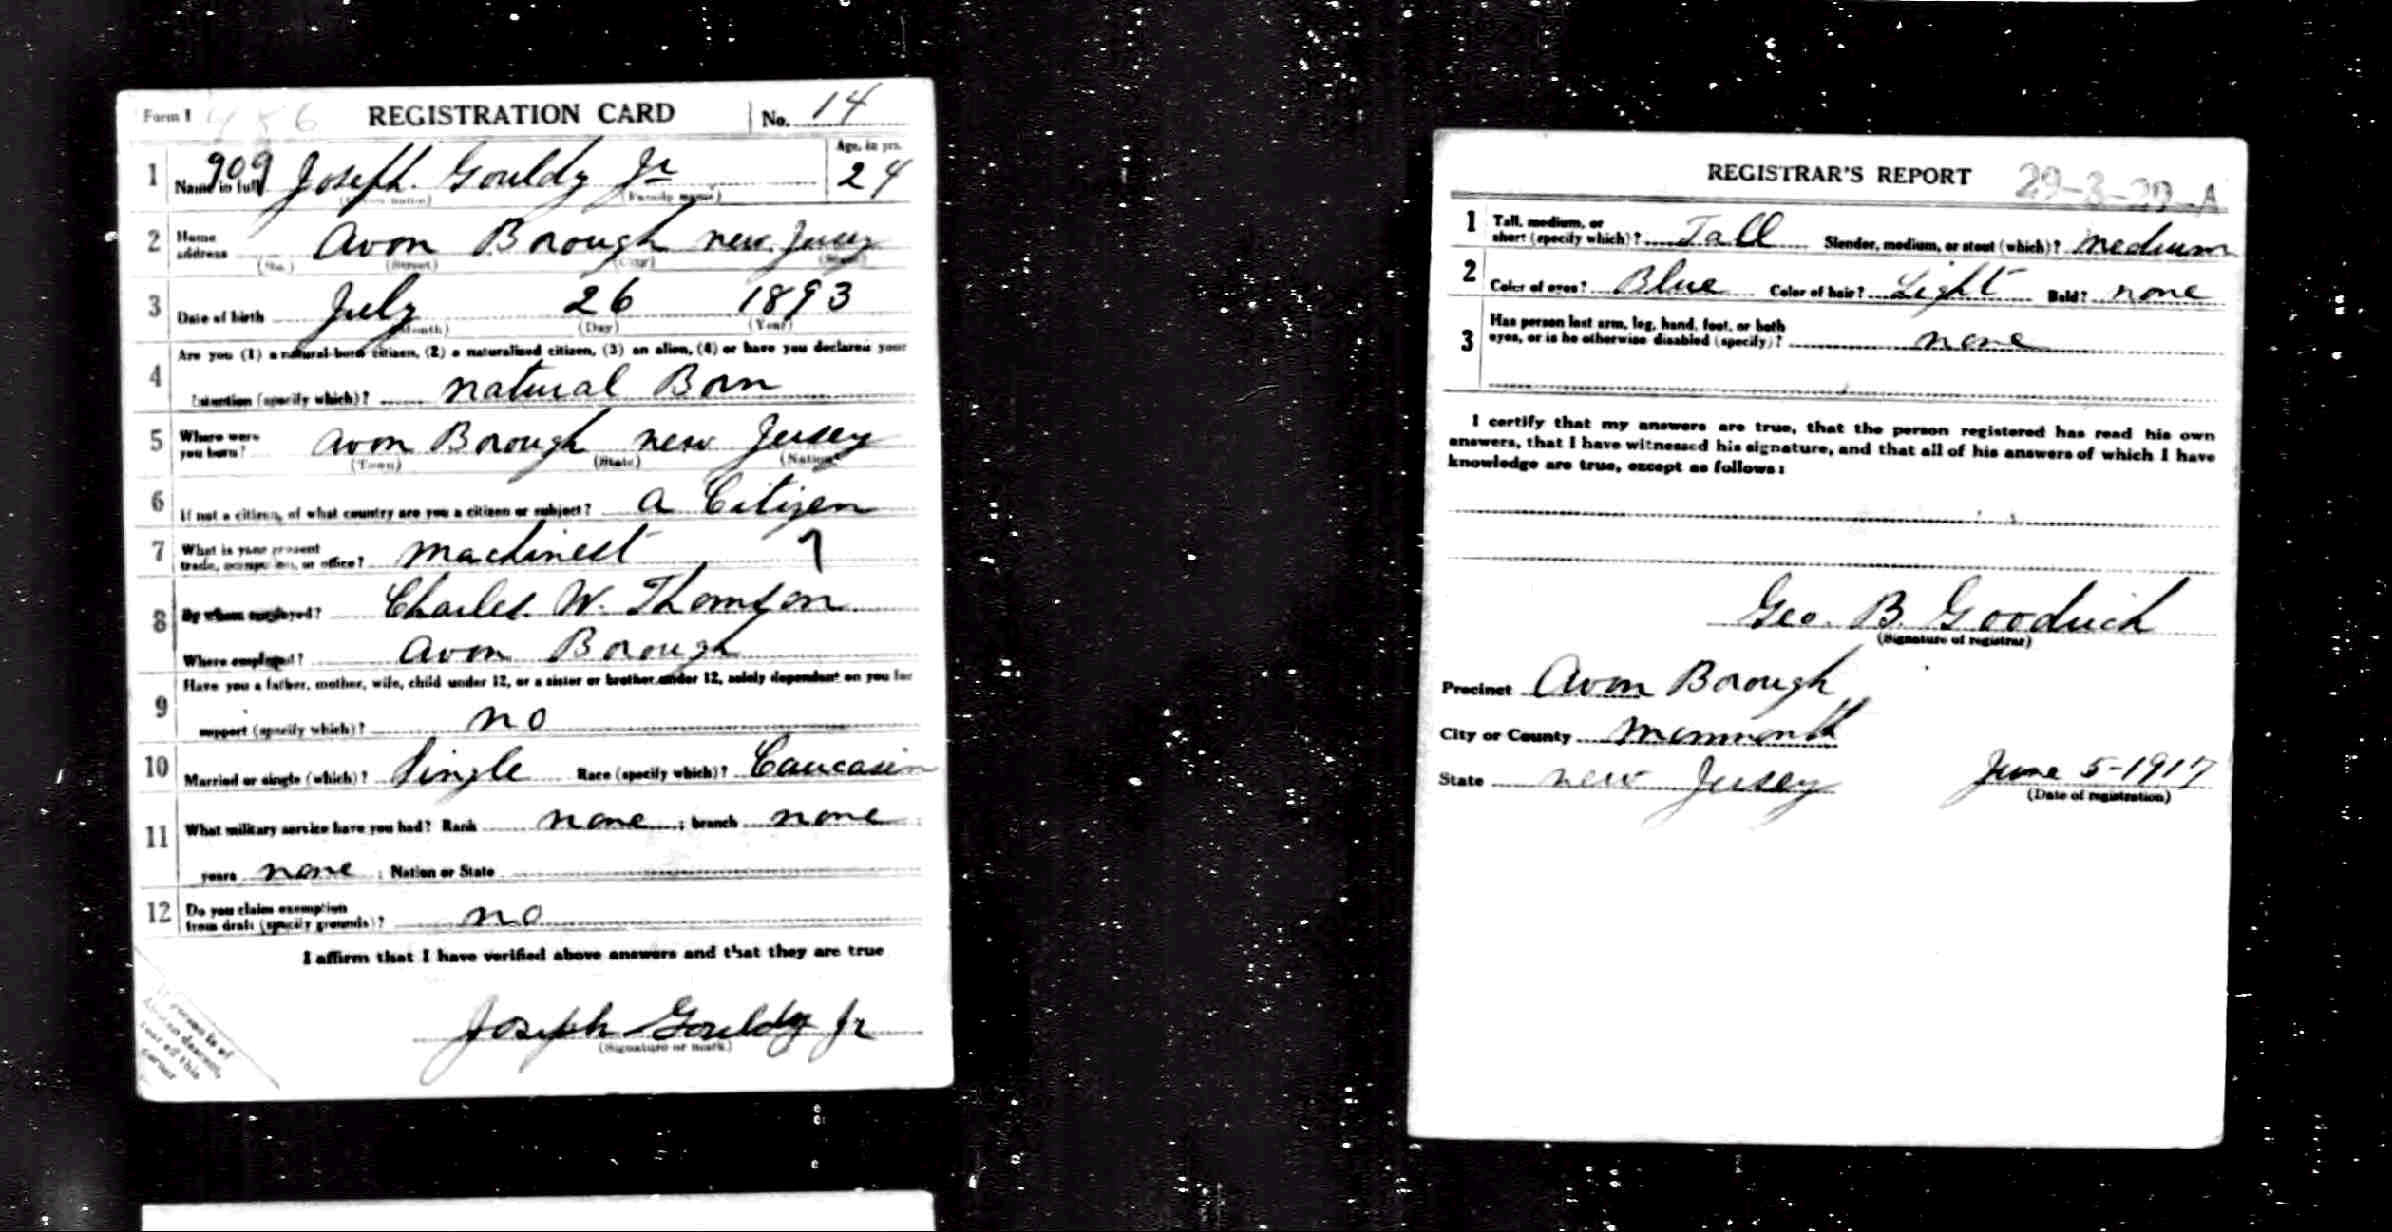 Form 1 486 REGISTRATION CARD No. 14
1 Name in full 909 Joseph Gouldy Jr Age, in yrs. 24
(Given name) (Family name)
2 Home address Avon Borough new Jersey
(No.) (Street) (City) (State)
3 Date of birth July 26 1893
(Month) (Day) (Year)
Are you (1) a natural-born citizen, (2) a naturalized citizen, (3) an alien, (4) or have you declared your
4 intention (specify which)? natural Born
5 Where were you born? Avon Borough new Jersey
(Town) (State) (Nation)
6 If not a citizen, of what country are you a citizen or subject? a Citizen
7 What is your present trade, occupation, or office? machinest 7
8 By whom employed? Charles W. Thomson
Where employed? Avon Borough
Have you a father, mother, wife, child under 12, or a sister or brother under 12, solely dependent on you for
9 support (specify which)? no
10 Married or single (which)? Single Race (specify which)? Caucasin
11 What military service have you had? Rank none ; branch none ;
years none ; Nation or State
12 Do you claim exemption from draft (specify grounds)? no
I affirm that I have verified above answers and that they are true
Joseph Gouldy Jr
(Signature or mark)
person is of
descent,
of this
corner
REGISTRAR'S REPORT 29-3-29-A
1 Tall, medium, or short (specify which)? Tall Slender, medium, or stout (which)? medium
2 Color of eyes? Blue Color of hair? Light Bald? none
3 Has person lost arm, leg, hand, foot, or both
eyes, or is he otherwise disabled (specify)? none
I certify that my answers are true, that the person registered has read his own
answers, that I have witnessed his signature, and that all of his answers of which I have
knowledge are true, except as follows:
Geo. B. Goodrich
(Signature of registrar)
Precinct Avon Borough
City or County Monmouth
State new Jersey June 5-1917
(Date of registration)